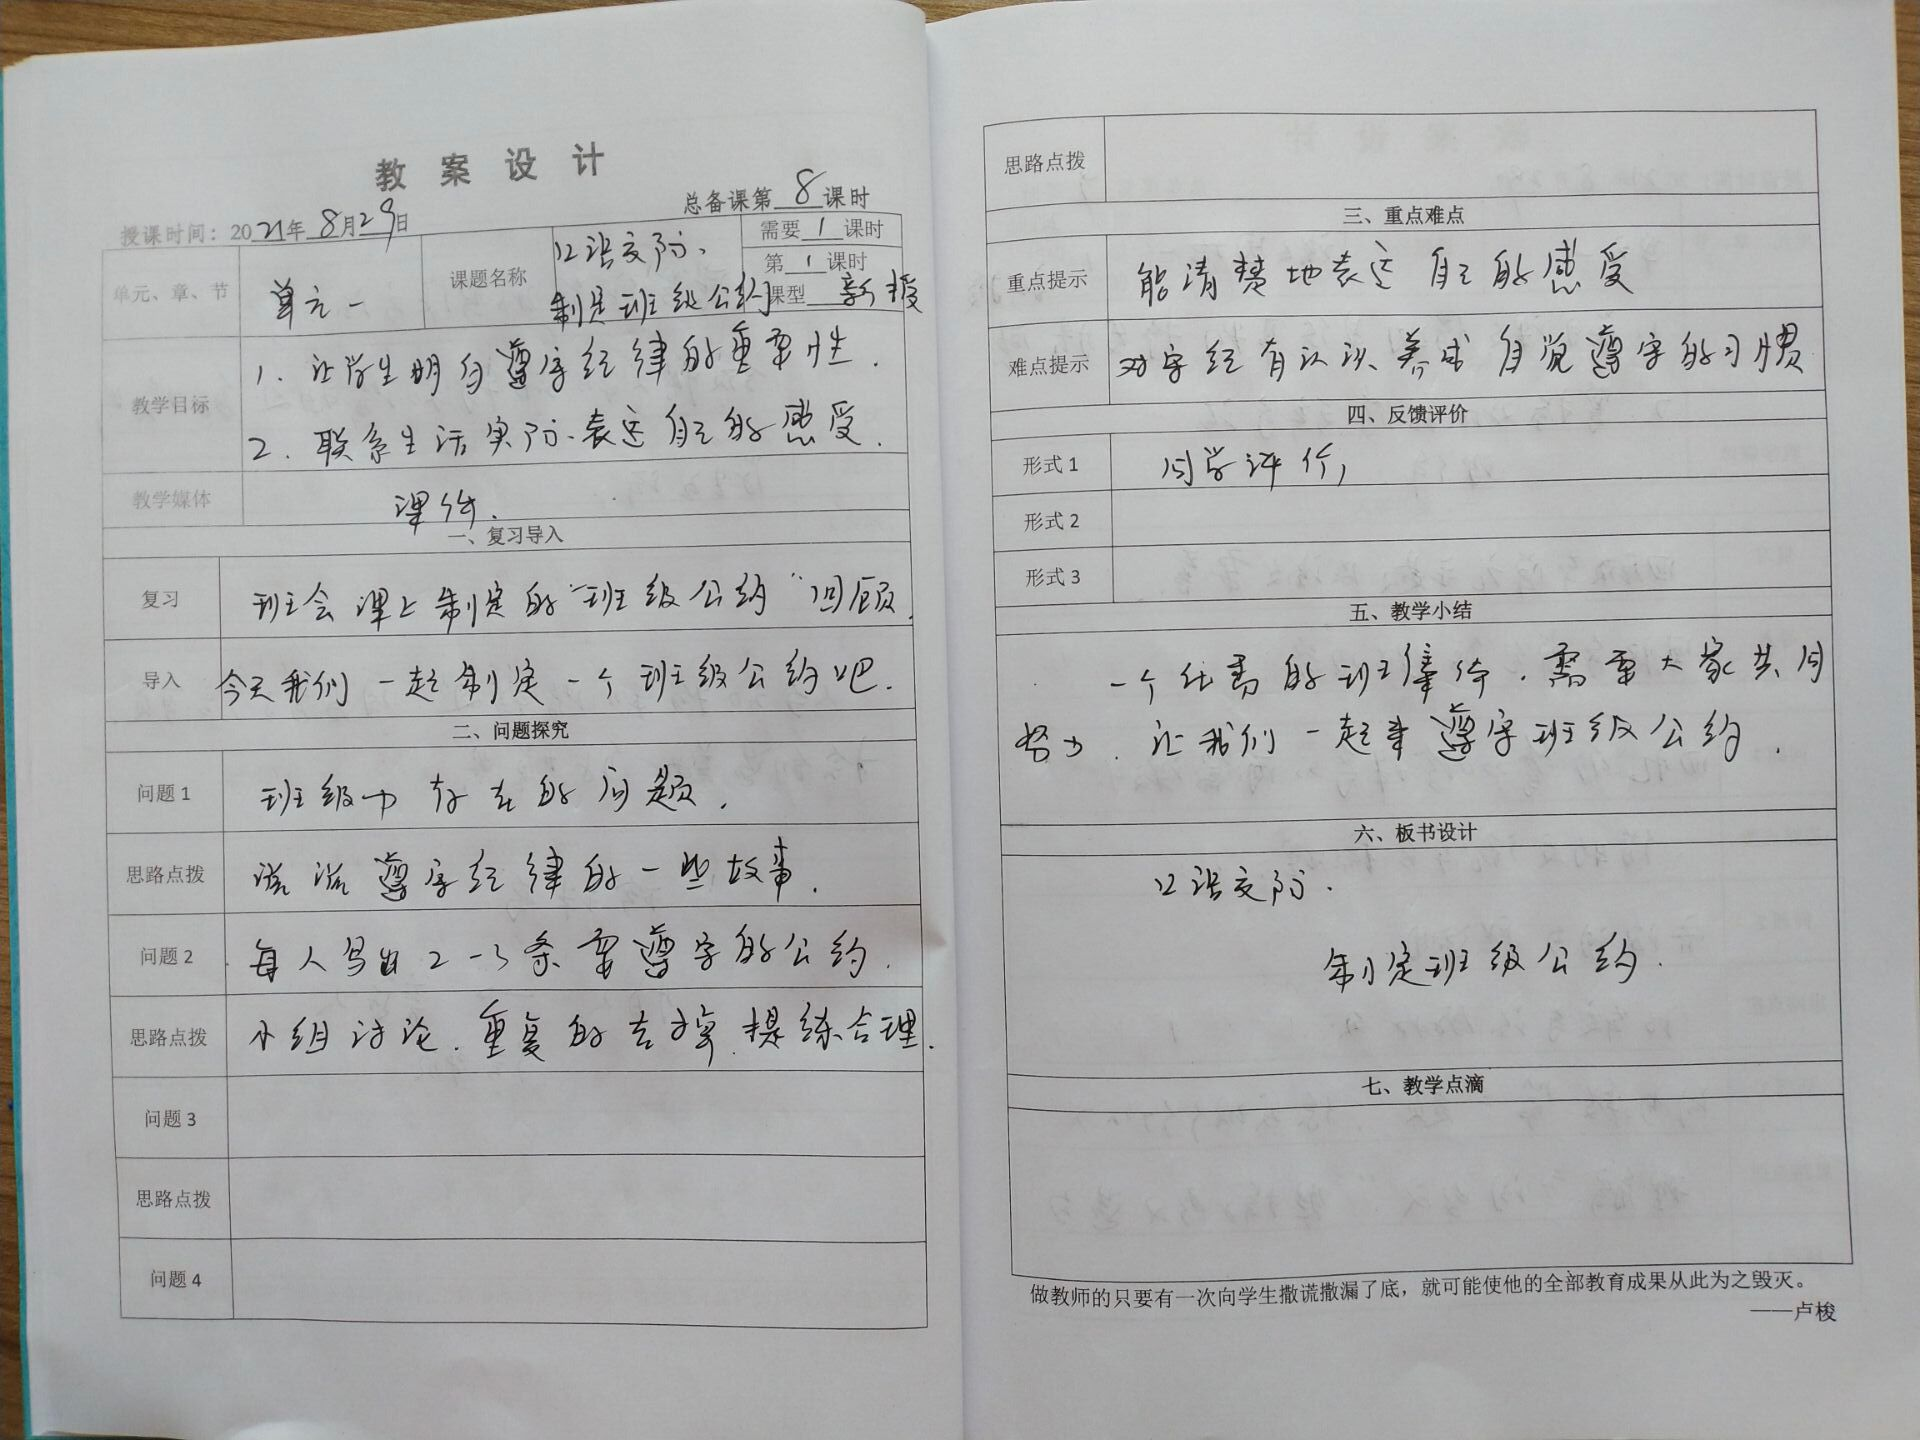 教案设计
总备课第 8 课时
授课时间：2021年 8月29日
单元、章、节
单元一
课题名称
口语交际、
制定班级公约
需要 1 课时
第 1 课时
课型 新授
教学目标
1. 让学生明白遵守纪律的重要性.
2. 联系生活实际、表达自己的感受.
教学媒体
课件.
一、复习导入
复习
班会课上制定的“班级公约”回顾.
导入
今天我们一起制定一个班级公约吧.
二、问题探究
问题1
班级中存在的问题.
思路点拨
说说遵守纪律的一些故事.
问题2
每人写出2-3条要遵守的公约.
思路点拨
小组讨论.重复的去掉.提练合理.
问题3
思路点拨
问题4
思路点拨
三、重点难点
重点提示
能清楚地表达自己的感受
难点提示
对守纪有认识、养成自觉遵守的习惯
四、反馈评价
形式1
同学评价
形式2
形式3
五、教学小结
一个优秀的班集体.需要大家共同
努力.让我们一起来遵守班级公约.
六、板书设计
口语交际.
制定班级公约.
七、教学点滴
做教师的只要有一次向学生撒谎撒漏了底，就可能使他的全部教育成果从此为之毁灭。
——卢梭